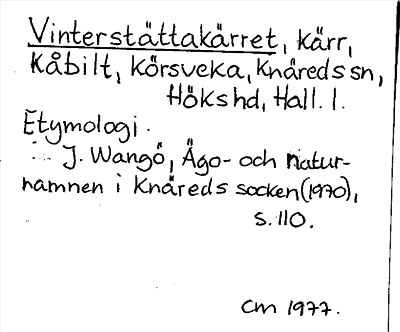 Vinterstättakärret, kärr,
Kåbilt, Körsveka, Knäreds sn,
Höks hd, Hall. l.
Etymologi.
J. Wangö, Ägo- och natur-
namnen i Knäreds socken (1970),
s. 110.
cm 1977.